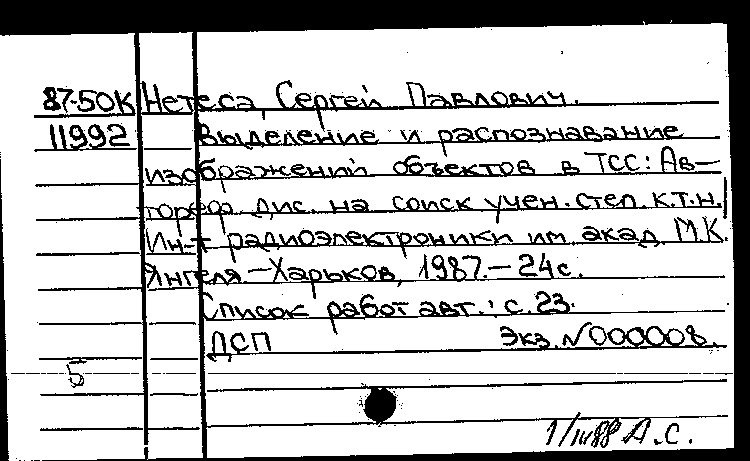 87-50К Нетеса, Сергей Павлович.
11992 Выделение и распознавание
изображений объектов в ТСС: Ав-
тореф. дис. на соиск учен. степ. к.т.н.
Ин-т радиоэлектроники им. акад. М.К.
Янгеля.-Харьков, 1987.-24с.
Список работ авт.: с. 23.
ДСП Экз. N000008.
5
1/IV88 А.С.